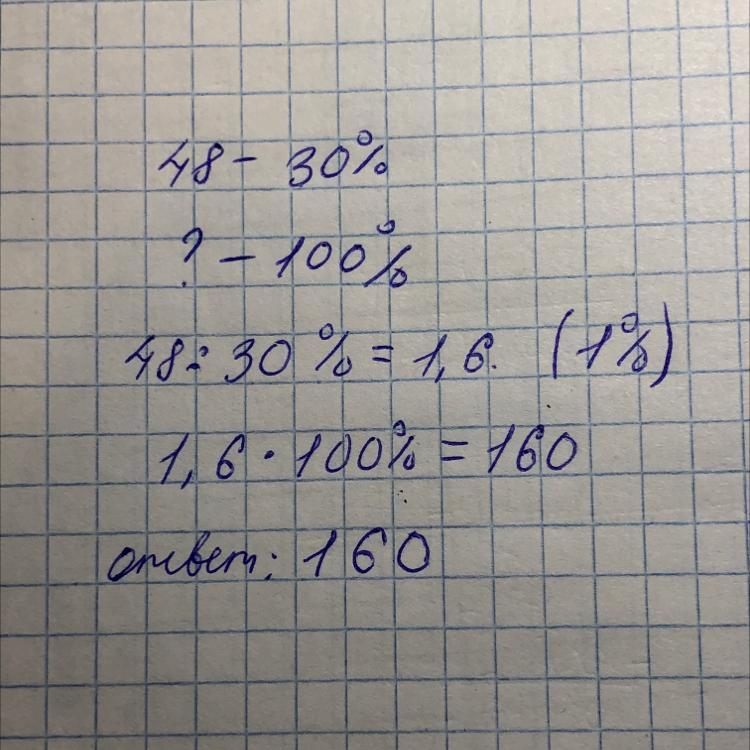 48 - 30%
? - 100%
48 : 30 % = 1,6. (1%)
1,6 · 100% = 160
ответ: 160